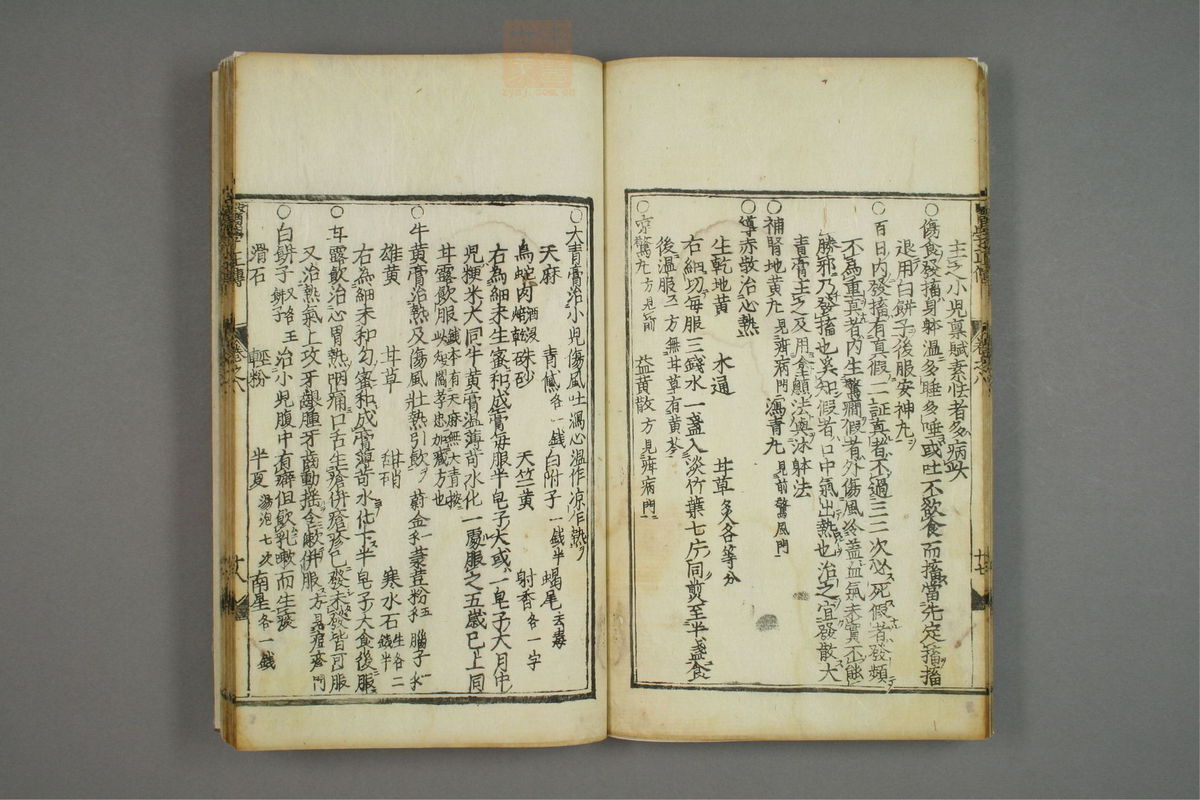 主之小兒稟賦素怯者多病此
○傷食發搐身體溫多睡多唾或吐不欲食而搐當先定搐搐
退用白餅子後服安神丸
○百日內發搐有真假二証真者不過三二次必死假者發頻
不為重真者內生驚癇假者外傷風冷蓋血氣未實不能
勝邪乃發搐也奚知假者口中氣出熱也治之宜發散大
青膏主之及用塗顖法浴體法
○補腎地黃丸 見疳病門 瀉青丸 見前驚風門
○導赤散治心熱
生乾地黃 木通 甘草炙各等分
右細切每服三錢水一盞入淡竹葉七片同煎至半盞食
後溫服又方無甘草有黃芩
○凉驚丸方見前 益黃散方見疳病門
○大青膏治小兒傷風吐瀉心溫作凉作熱
天麻 青黛各一錢 白附子一錢半 蝎尾去毒
烏蛇肉酒浸焙乾 硃砂 天竺黃 射香各一字
右為細末生蜜和成膏每服半皂子大或一皂子大月中
兒粳米大同牛黃膏溫薄荷水化一處服之五歲已上同
甘露飲服錢本有天麻無大青按此以閻孝忠加減方也
○牛黃膏治熱及傷風壯熱引飲
雄黃 甘草 甜硝 寒水石生各二錢半
右為細末和勻蜜和成膏薄荷水化下半皂子大食後服
○甘露飲治心胃熱咽痛口舌生瘡併瘡疹已發未發皆可服
又治熱氣上攻牙齦腫牙齒動搖 方見痘疹門
○白餅子又名玉餅子 治小兒腹中有癖但飲乳嗽而生痰
滑石 輕粉 半夏湯泡七次 南星各一錢
醫學正傳
卷之八